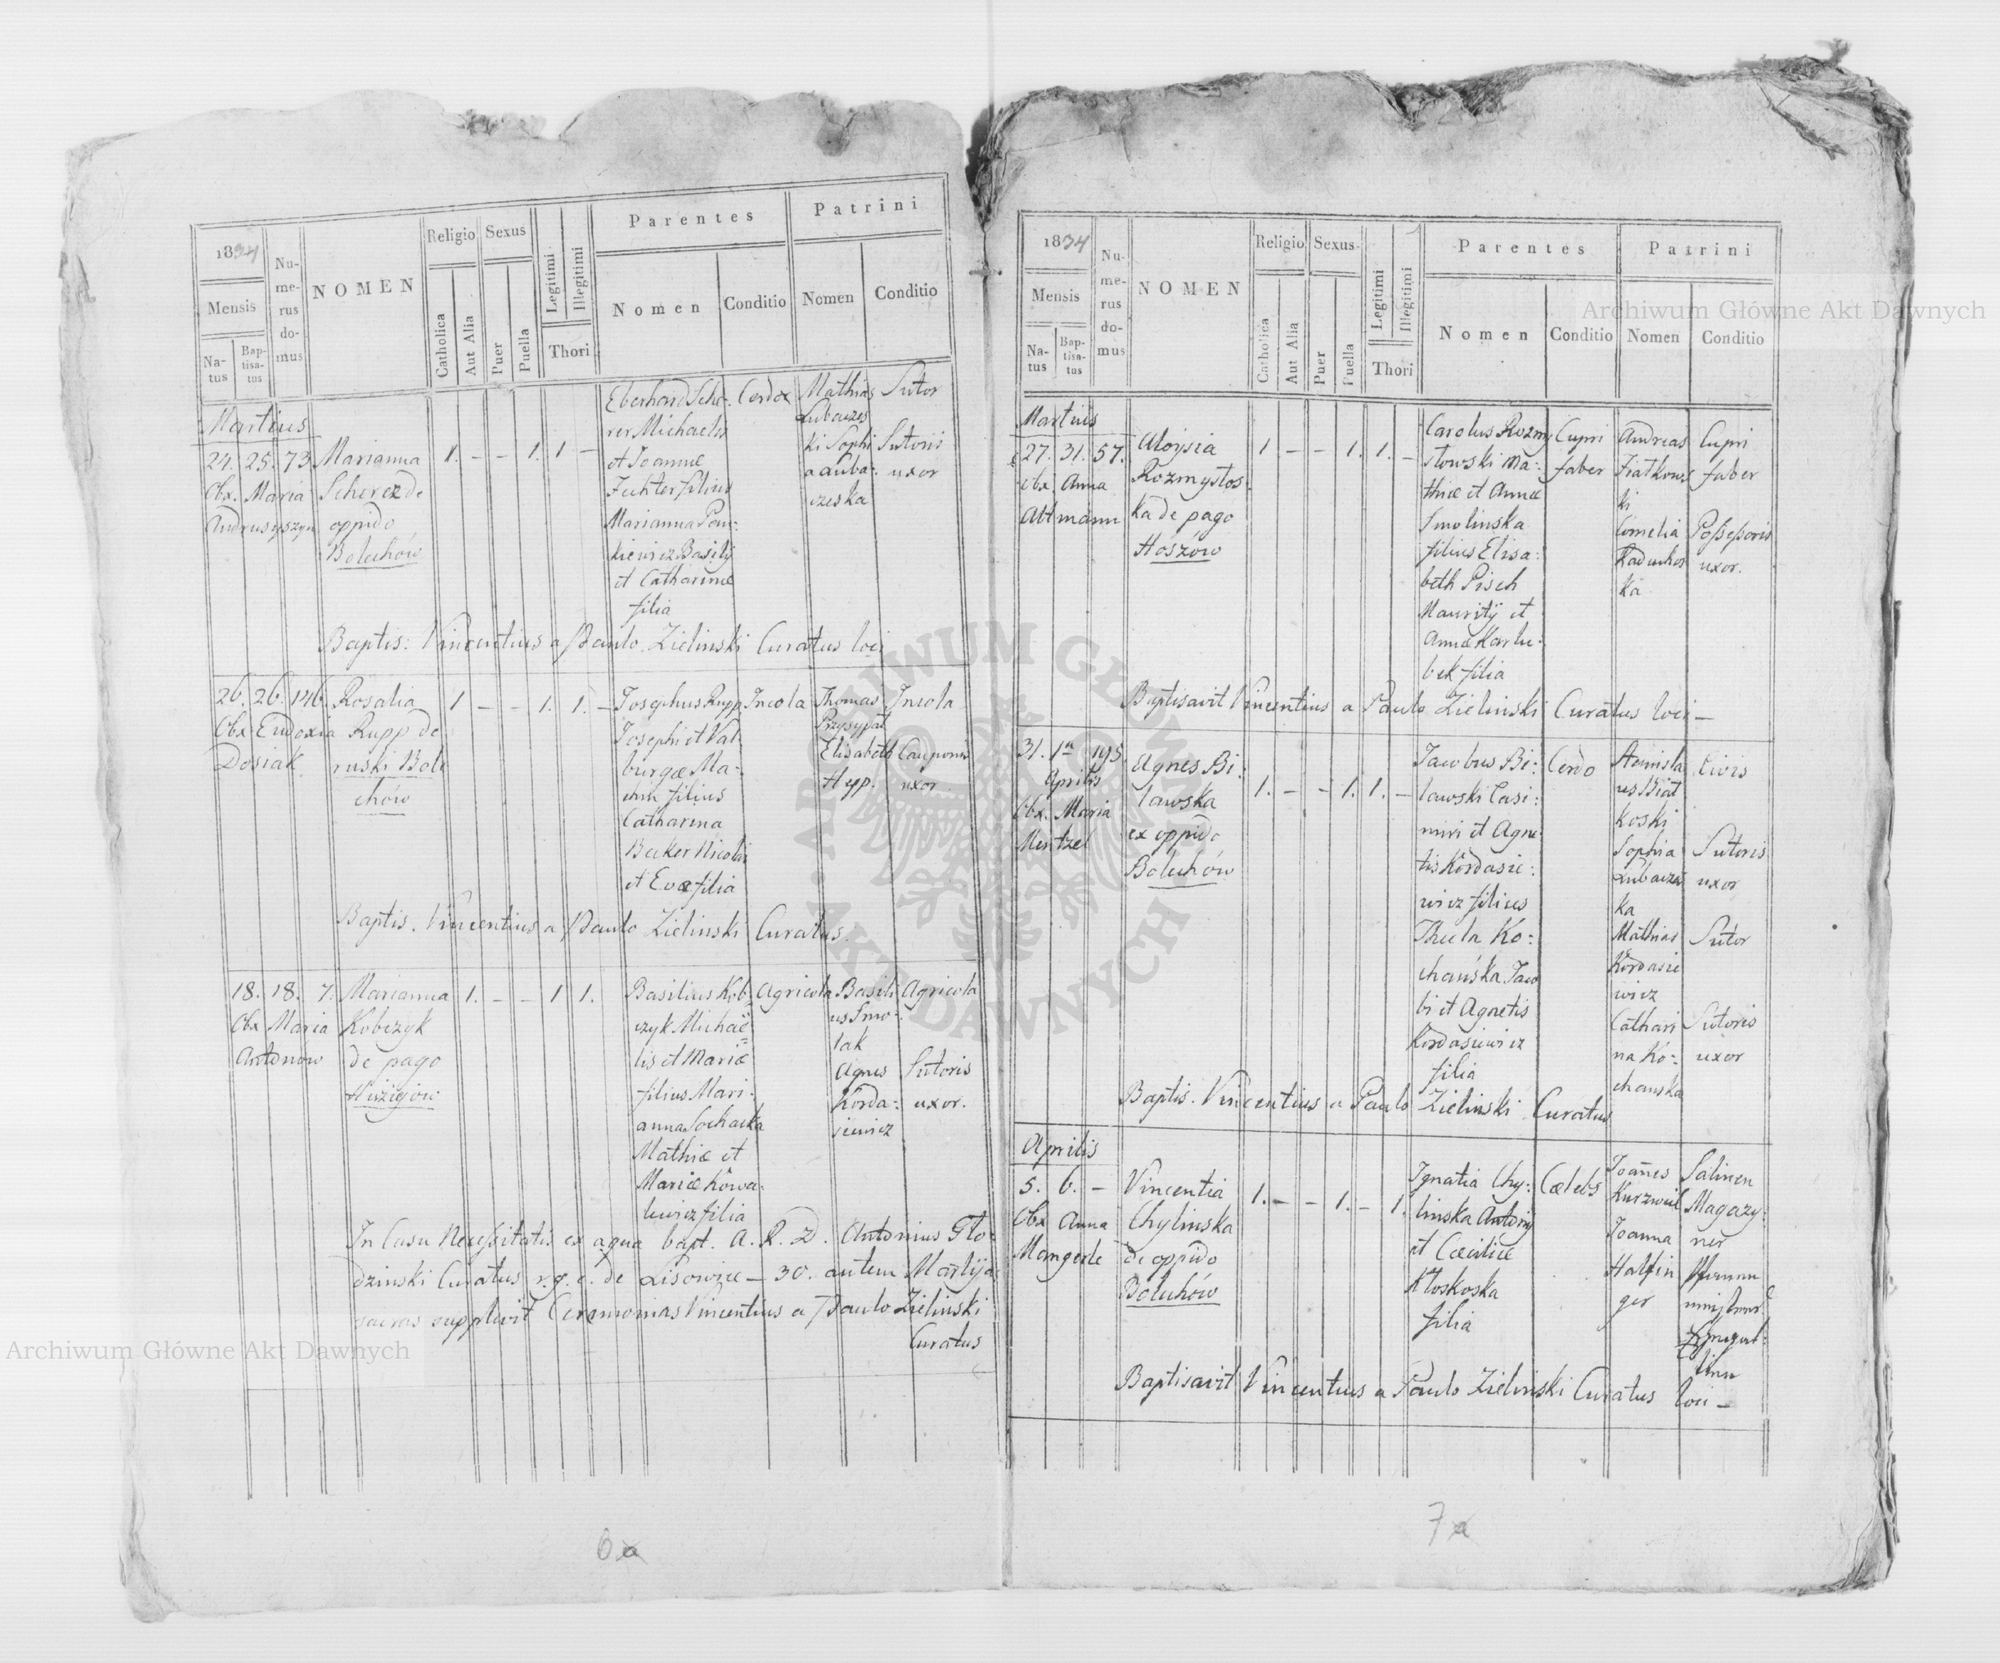 1834
Mensis
Natus
Baptisatus
Numerus domus
NOMEN
Religio
Catholica
Aut Alia
Sexus
Puer
Puella
Legitimi
Illegitimi
Thori
Parentes
Nomen
Conditio
Patrini
Nomen
Conditio
Martius
24. 25. 73
Obx. Maria
Andrusyszyn
Marianna
Scherer de
oppido
Bolechów
1. - - 1. 1 -
Eberhard Sche-
rer Michaelis
et Joannæ
filius
Marianna Pan-
kiewicz Basilÿ
et Catharinæ
filia
Cerdo
Mathias
Lubaczes
ki Sophi
a Luba-
czeska
Sutor
Sutoris
uxor
Baptis: Vincentius a Paulo Zielinski Curatus loci
26. 26. 146.
Obx Eudoxia
Dosiak
Rosalia
Rupp de
ruski Bole
chów
1 - - 1. 1. -
Josephus Rupp
Josephi et Val
burgæ Ma-
filius
Catharina
Becker Nicolai
et Evæ filia
Incola
Thomas
Przysypał
Elisabeth
Hepp.
Incola
Cauponis
uxor
Baptis. Vincentius a Paulo Zielinski Curatus.
18. 18. 7.
Obx Maria
Antonow
Marianna
Kobczyk
de pago
1. - - 1 1.
Basilius Kob
czyk Michaë
lis et Mariæ
filius Mari-
anna Sochacka
Mathiæ et
Mariæ Kowa-
lewicz filia
Agricola
Basili
us Smo-
lak
Agnes
Korda-
siewicz
Agricola
Sutoris
uxor.
In Casu Necessitatis ex aqua bapt. A. R. D. Antonius Glo-
dzinski Curatus r. g. c. de Lisowice — 30. autem Martij
sacras supplevit Ceremonias Vincentius a Paulo Zielinski
Curatus
6a
1834
Mensis
Natus
Baptisatus
Numerus domus
NOMEN
Religio
Catholica
Aut Alia
Sexus
Puer
Puella
Legitimi
Illegitimi
Thori
Parentes
Nomen
Conditio
Patrini
Nomen
Conditio
Martius
27. 31. 57.
Obx. Anna
Altmann
Aloysia
Rozmysłos
ka de pago
Hoszów
1 - - 1. 1. -
Carolus Rozmy
słowski Ma-
thiæ et Annæ
Smolinska
filius Elisa-
beth Pisch
Mauritÿ et
Annæ Karlu-
bek filia
Cupri
faber
Andreas
Fiatkows
ki
Cornelia
Kaduchos
ka
Cupri
faber
Possessoris
uxor.
Baptisavit Vincentius a Paulo Zielinski Curatus loci —
31. 1ma 195
Aprilis
Obx. Maria
Mentzel
Agnes Bi-
lawska
ex oppido
Bolechów
1. - - 1. 1. -
Jacobus Bi-
lawski Casi-
miri et Agne
tis Kordasie-
wicz filius
Thecla Ko-
chańska Jaco
bi et Agnetis
Kordasiewicz
filia
Cerdo
Stanisla
us Biał
koski
Sophia
Lubaczes
ka
Mathias
Kordasie
wicz
Cathari
na Ko-
chanska
Civis
Sutoris
uxor
Sutor
Sutoris
uxor
Baptis. Vincentius a Paulo Zielinski Curatus
Aprilis
5. 6. -
Obx Anna
Mangerle
Vincentia
Chylinska
de oppido
Bolechów
1. - - 1. - 1.
Ignatia Chy-
linska Antonÿ
et Cæciliæ
Kłoskoska
filia
Cælebs
Joannes
Kurzweil
Joanna
Halfin
ger
Salinen
Magazy-
ner
Baptisavit Vincentius a Paulo Zielinski Curatus loci —
7a
Archiwum Główne Akt Dawnych
Archiwum Główne Akt Dawnych
ARCHIWUM GŁÓWNE AKT DAWNYCH